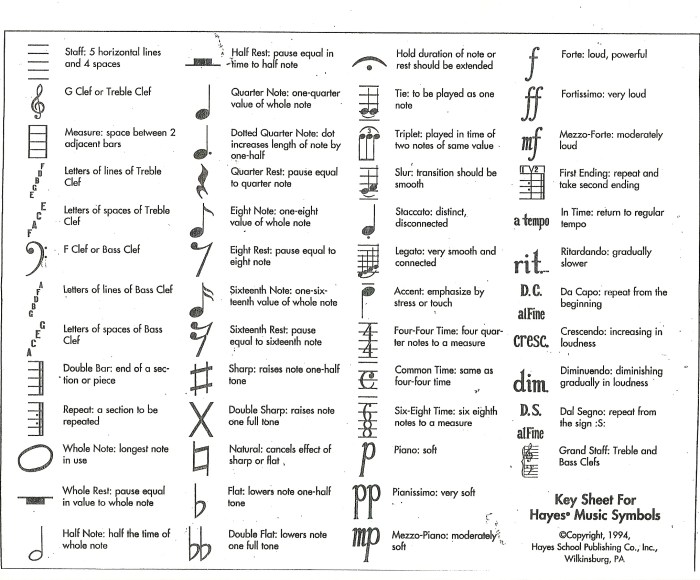 Staff: 5 horizontal lines
and 4 spaces
G Clef or Treble Clef
Measure: space between 2
adjacent bars
F
D
B
G
E
Letters of lines of Treble
Clef
E
C
A
F
Letters of spaces of Treble
Clef
F Clef or Bass Clef
A
F
D
B
G
Letters of lines of Bass Clef
G
E
C
A
Letters of spaces of Bass
Clef
Double Bar: end of a sec-
tion or piece
Repeat: a section to be
repeated
Whole Note: longest note
in use
Whole Rest: pause equal
in value to whole note
Half Note: half the time of
whole note
Half Rest: pause equal in
time to half note
Quarter Note: one-quarter
value of whole note
Dotted Quarter Note: dot
increases length of note by
one-half
Quarter Rest: pause equal
to quarter note
Eight Note: one-eight
value of whole note
Eight Rest: pause equal to
eight note
Sixteenth Note: one-six-
teenth value of whole note
Sixteenth Rest: pause
equal to sixteenth note
Sharp: raises note one-half
tone
Double Sharp: raises note
one full tone
Natural: cancels effect of
sharp or flat
Flat: lowers note one-half
tone
Double Flat: lowers note
one full tone
Hold duration of note or
rest should be extended
Tie: to be played as one
note
3
Triplet: played in time of
two notes of same value
Slur: transition should be
smooth
Staccato: distinct,
disconnected
Legato: very smooth and
connected
Accent: emphasize by
stress or touch
4
4
Four-Four Time: four quar-
ter notes to a measure
C
Common Time: same as
four-four time
6
8
Six-Eight Time: six eighths
notes to a measure
p
Piano: soft
pp
Pianissimo: very soft
mp
Mezzo-Piano: moderately
soft
f
Forte: loud, powerful
ff
Fortissimo: very loud
mf
Mezzo-Forte: moderately
loud
1 V2
First Ending: repeat and
take second ending
a tempo
In Time: return to regular
tempo
rit.
Ritardando: gradually
slower
D.C.
alFine
Da Capo: repeat from the
beginning
cresc.
Crescendo: increasing in
loudness
dim.
Diminuendo: diminishing
gradually in loudness
D.S.
alFine
Dal Segno: repeat from
the sign :S:
Grand Staff: Treble and
Bass Clefs
Key Sheet For
Hayes® Music Symbols
©Copyright, 1994,
Hayes School Publishing Co., Inc.,
Wilkinsburg, PA